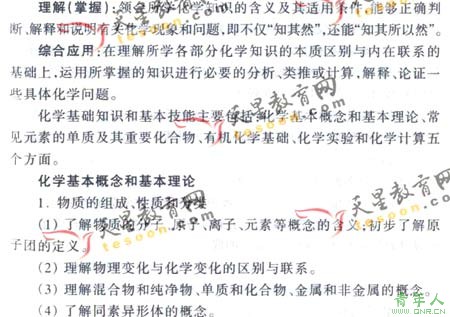 理解(掌握):领会所学化学知识的含义及其适用条件,能够正确判
断、解释和说明有关化学现象和问题,即不仅“知其然”,还能“知其所以然”。
综合应用:在理解所学各部分化学知识的本质区别与内在联系的
基础上,运用所掌握的知识进行必要的分析、类推或计算,解释、论证一
些具体化学问题。
化学基础知识和基本技能主要包括:化学基本概念和基本理论、常
见元素的单质及其重要化合物、有机化学基础、化学实验和化学计算五
个方面。
化学基本概念和基本理论
1. 物质的组成、性质和分类
(1) 了解物质的分子、原子、离子、元素等概念的含义;初步了解原
子团的定义。
(2) 理解物理变化与化学变化的区别与联系。
(3) 理解混合物和纯净物、单质和化合物、金属和非金属的概念。
(4) 了解同素异形体的概念。
天星教育网
tesoon.com
天星教育网
tesoon.com
天星教育网
tesoon.com
天星教育网
tesoon.com
青年人
WWW.QNR.CN